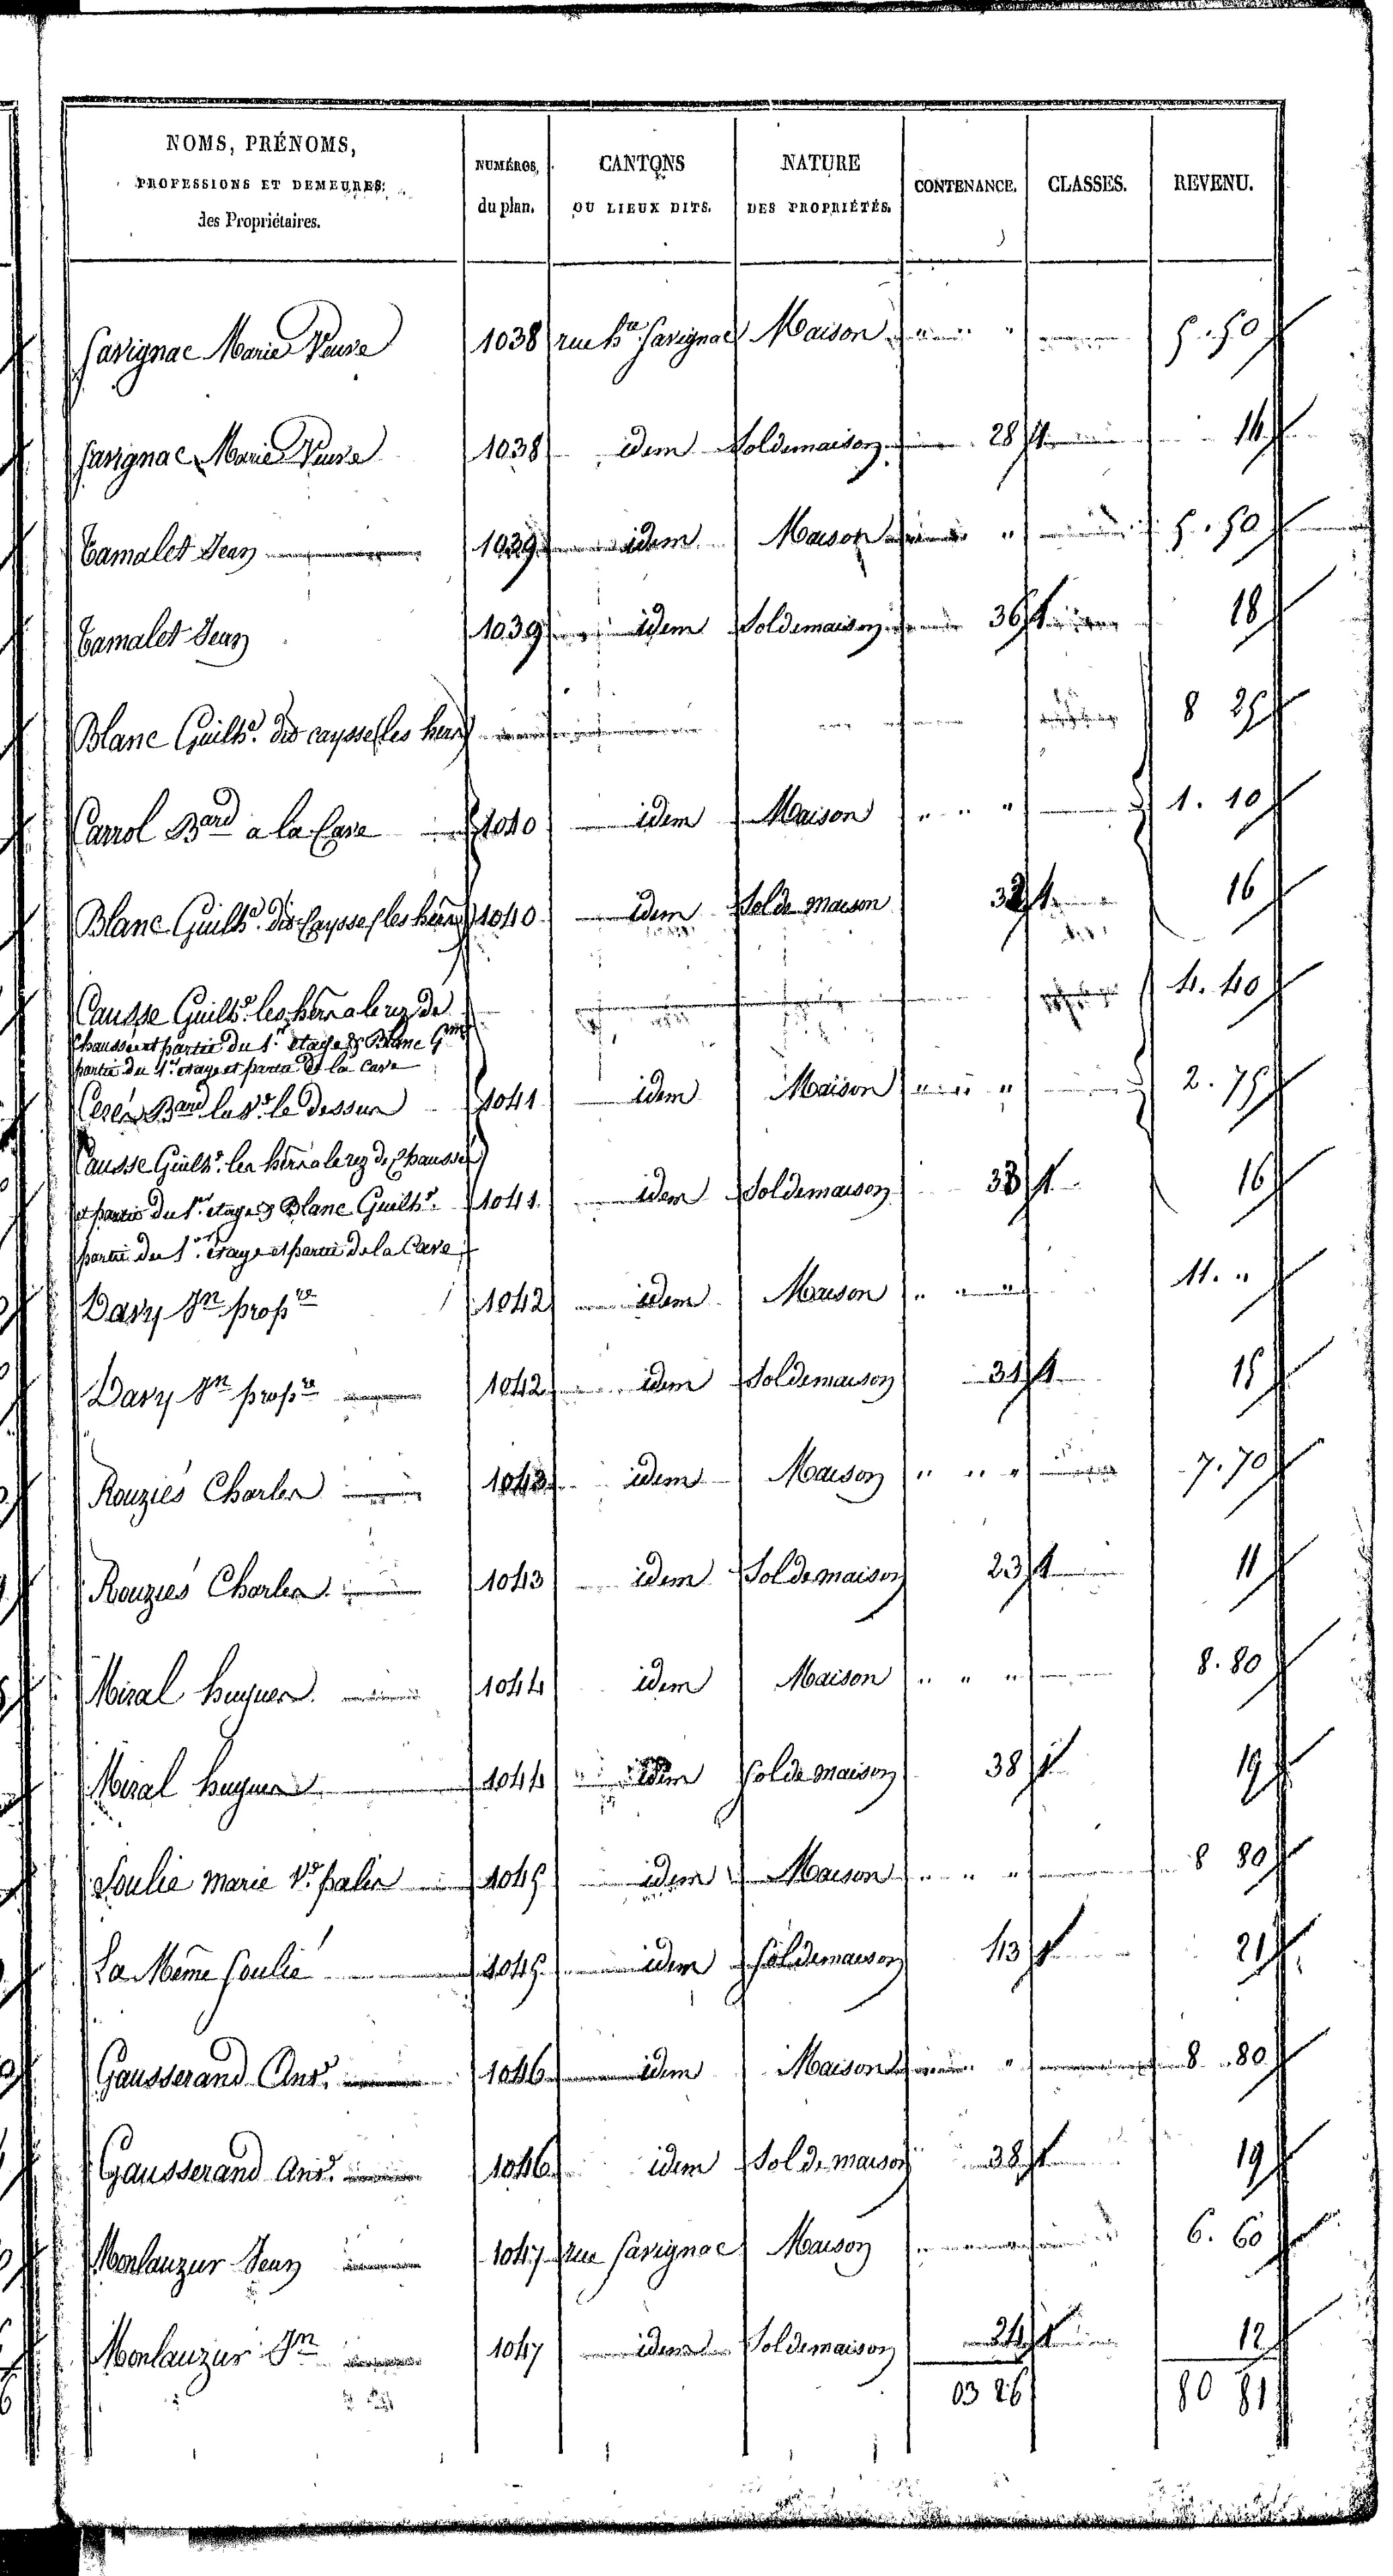 NOMS, PRÉNOMS,
PROFESSIONS ET DEMEURES
des Propriétaires.
NUMÉROS, du plan.
CANTONS OU LIEUX DITS.
NATURE DES PROPRIÉTÉS.
CONTENANCE.
CLASSES.
REVENU.
Savignac Marie Veuve 1038 rue hte Savignac Maison " " " 5.50
Savignac Marie Veuve 1038 idem Sol de maison 28 1 14
Tamalet Jean 1039 idem Maison " 5.50
Tamalet Jean 1039 idem Sol de maison 36 1 18
Blanc Guilhe. dit caysse (les hers) 8 25
Carrol Bard a la Cave 1040 idem Maison " " " 1.10
Blanc Guilhe. dit Caysse (les hers) 1040 idem Sol de maison 32 1 16
Causse Guilhe. les hers a le rez de 4.40
chaussée et partie du 1er étage & Blanc Gme
partie du 1er étage et partie de la cave
Bard la Ve. le dessus 1041 idem Maison " " " 2.75
Causse Guilhe. les hers a le rez de chaussée
et partie du 1er étage & Blanc Guilhe. 1041 idem Sol de maison 33 1 16
partie du 1er étage et partie de la Cave
Davy Jn propre 1042 idem Maison " " " 11. "
Davy Jn propre 1042 idem Sol de maison 31 1 15
Rouziés Charles 1043 idem Maison " " " 7.70
Rouziés Charles 1043 idem Sol de maison 23 1 11
Miral hugues 1044 idem Maison " " " 8.80
Miral hugues 1044 idem Sol de maison 38 1 19
Soulié marie Ve. 1045 idem Maison " " " 8 80
La Même Soulié 1045 idem Sol de maison 43 1 21
Gausserand Ant. 1046 idem Maison " 8 80
Gausserand Ant. 1046 idem Sol de maison 38 1 19
Monlauzur Jean 1047 rue Savignac Maison " 6.60
Monlauzur Jn 1047 idem Sol de maison 24 1 12
03 26 80 81